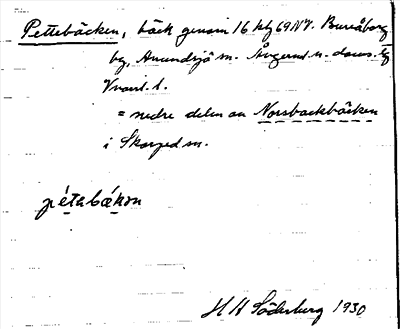 Pettebäcken, bäck genom 16 kf 69 NV. Bureåborg
by, Anundsjö sn. Ångerml. n. doms.
= nedre delen av Norsbackbäcken
i Skorped sn.
pétabǽkon
H H Söderberg 1930